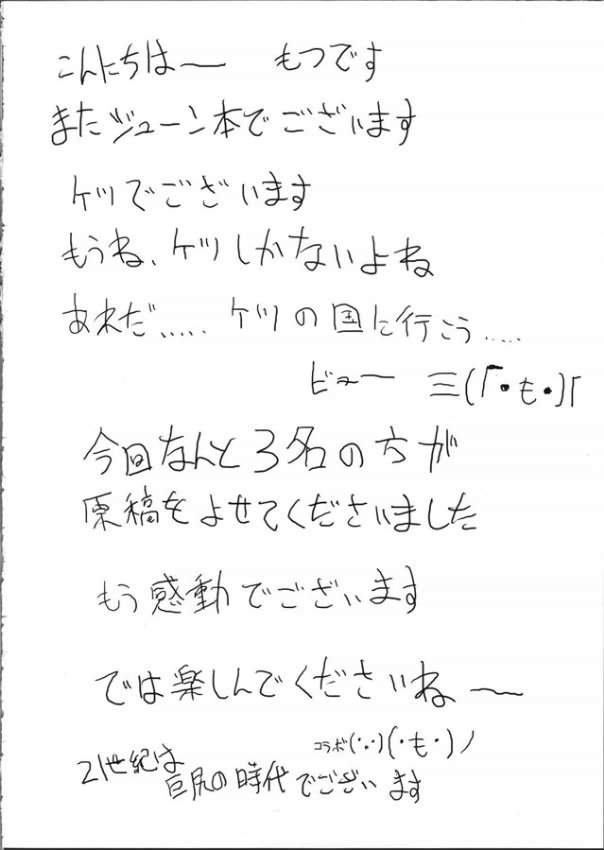 こんにちは〜 もつです
またジューン本でございます
ケツでございます
もうね、ケツしかないよね
あれだ..... ケツの国に行こう.....
ビュー 三(「・も・)「
今回なんと3名の方が
原稿をよせてくださいました
もう感動でございます
では楽しんでくださいね〜
コラボ(・.・)(・も・)ノ
21世紀は
巨尻の時代でございます